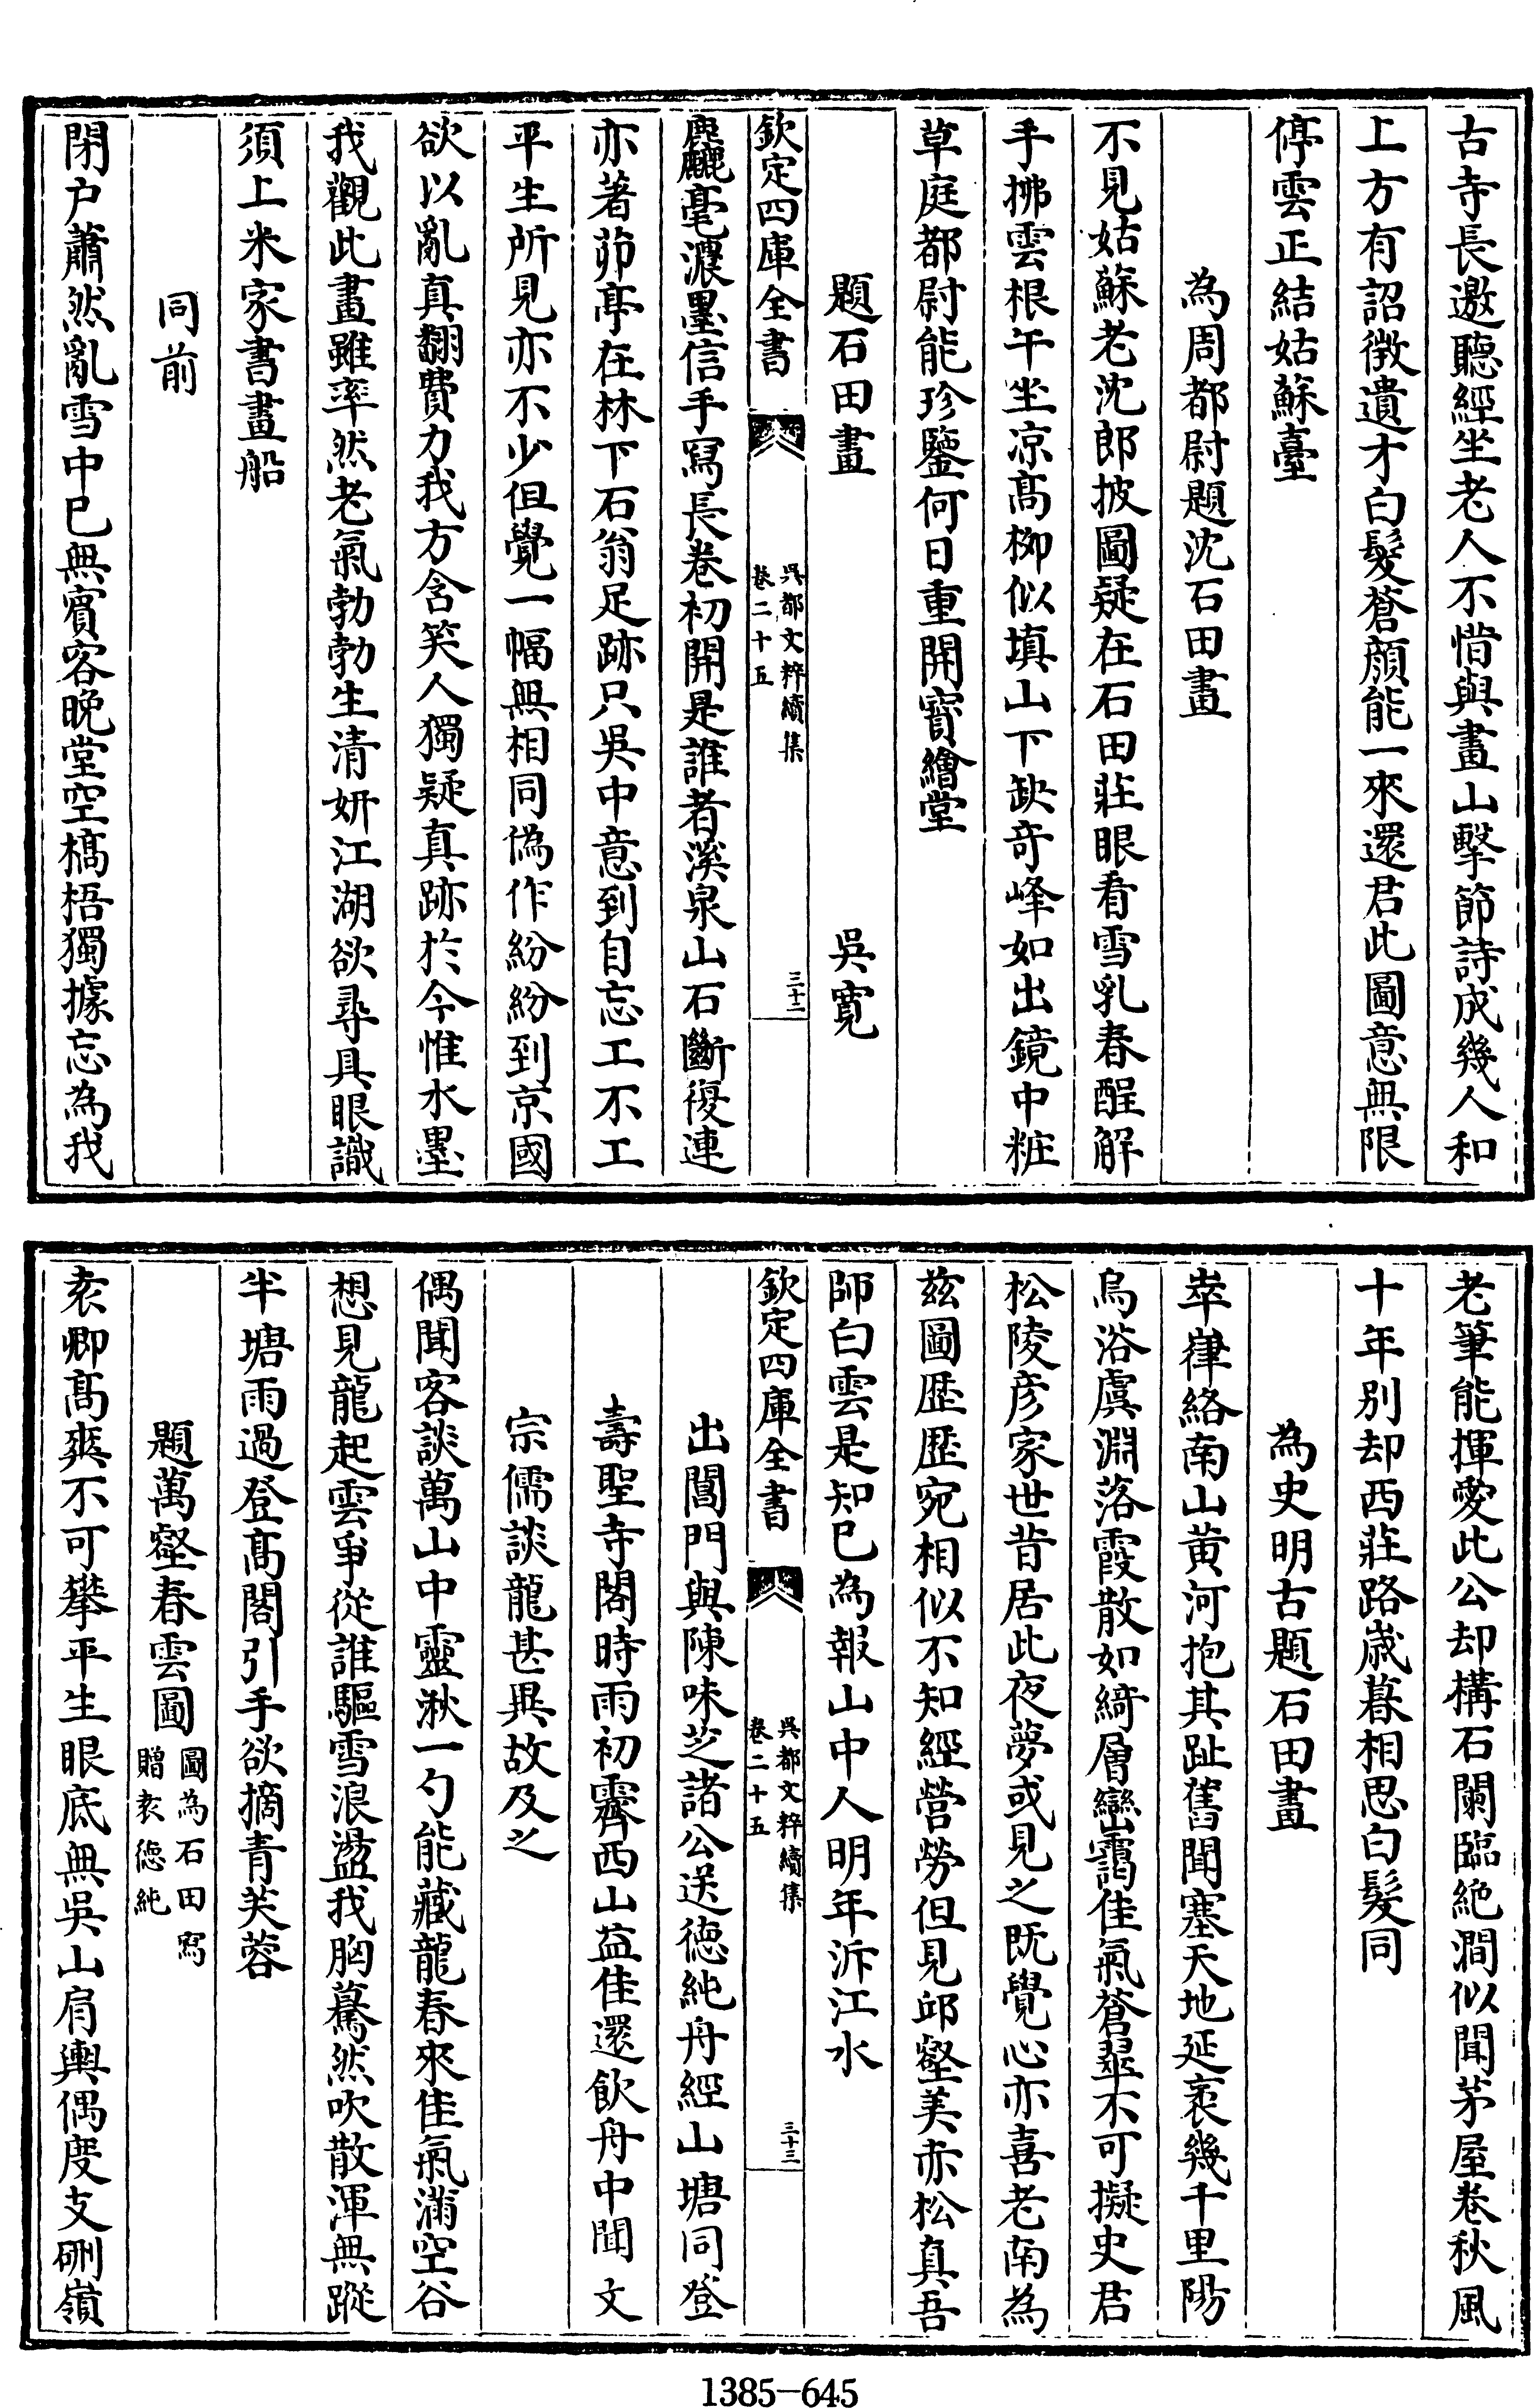 古寺長邀聽經坐老人不惜與畫山擊節詩成幾人和
上方有詔徴遺才白髮蒼顔能一來還君此圖意無限
停雲正結姑蘇臺
為周都尉題沈石田畫
不見姑蘇老沈郎披圖疑在石田莊眼看雪乳春酲解
手拂雲根午坐凉髙栁似填山下缺竒峰如出鏡中粧
草庭都尉能珍鑒何日重開寳繪堂
題石田畫 吳寛
欽定四庫全書 吳都文粹續集 卷二十五 三十二
麤毫濃墨信手冩長卷初開是誰者溪泉山石斷復連
亦著茆亭在林下石翁足跡只吳中意到自忘工不工
平生所見亦不少但覺一幅無相同偽作紛紛到京國
欲以亂真翻費力我方含笑人獨疑真跡於今惟水墨
我觀此畫雖率然老氣勃勃生清妍江湖欲尋具眼識
須上米家書畫船
同前
閉户蕭然亂雪中已無賔客晚堂空槗梧獨據忘為我
老筆能揮愛此公却構石闌臨絶澗似聞茅屋卷秋風
十年别却西莊路歳暮相思白髮同
為史明古題石田畫
崒嵂絡南山黄河抱其趾舊聞塞天地延袤幾千里陽
烏浴虞淵落霞散如綺層巒靄佳氣蒼翠不可擬史君
松陵彦家世昔居此夜夢或見之既覺心亦喜老南為
兹圖歴歴宛相似不知經營勞但見邱壑美赤松真吾
師白雲是知已為報山中人明年泝江水
欽定四庫全書 吳都文粹續集 卷二十五 三十三
出閶門與陳味芝諸公送徳純舟經山塘同登
壽聖寺閣時雨初霽西山益佳還飲舟中聞文
宗儒談龍甚異故及之
偶聞客談萬山中靈湫一勺能藏龍春來佳氣滿空谷
想見龍起雲爭從誰驅雪浪盪我胸驀然吹散渾無蹤
半塘雨過登髙閣引手欲摘青芙蓉
題萬壑春雲圖 圖為石田寫贈袁徳純
袁卿髙爽不可攀平生眼底無吳山肩輿偶度支硎嶺
1385-645